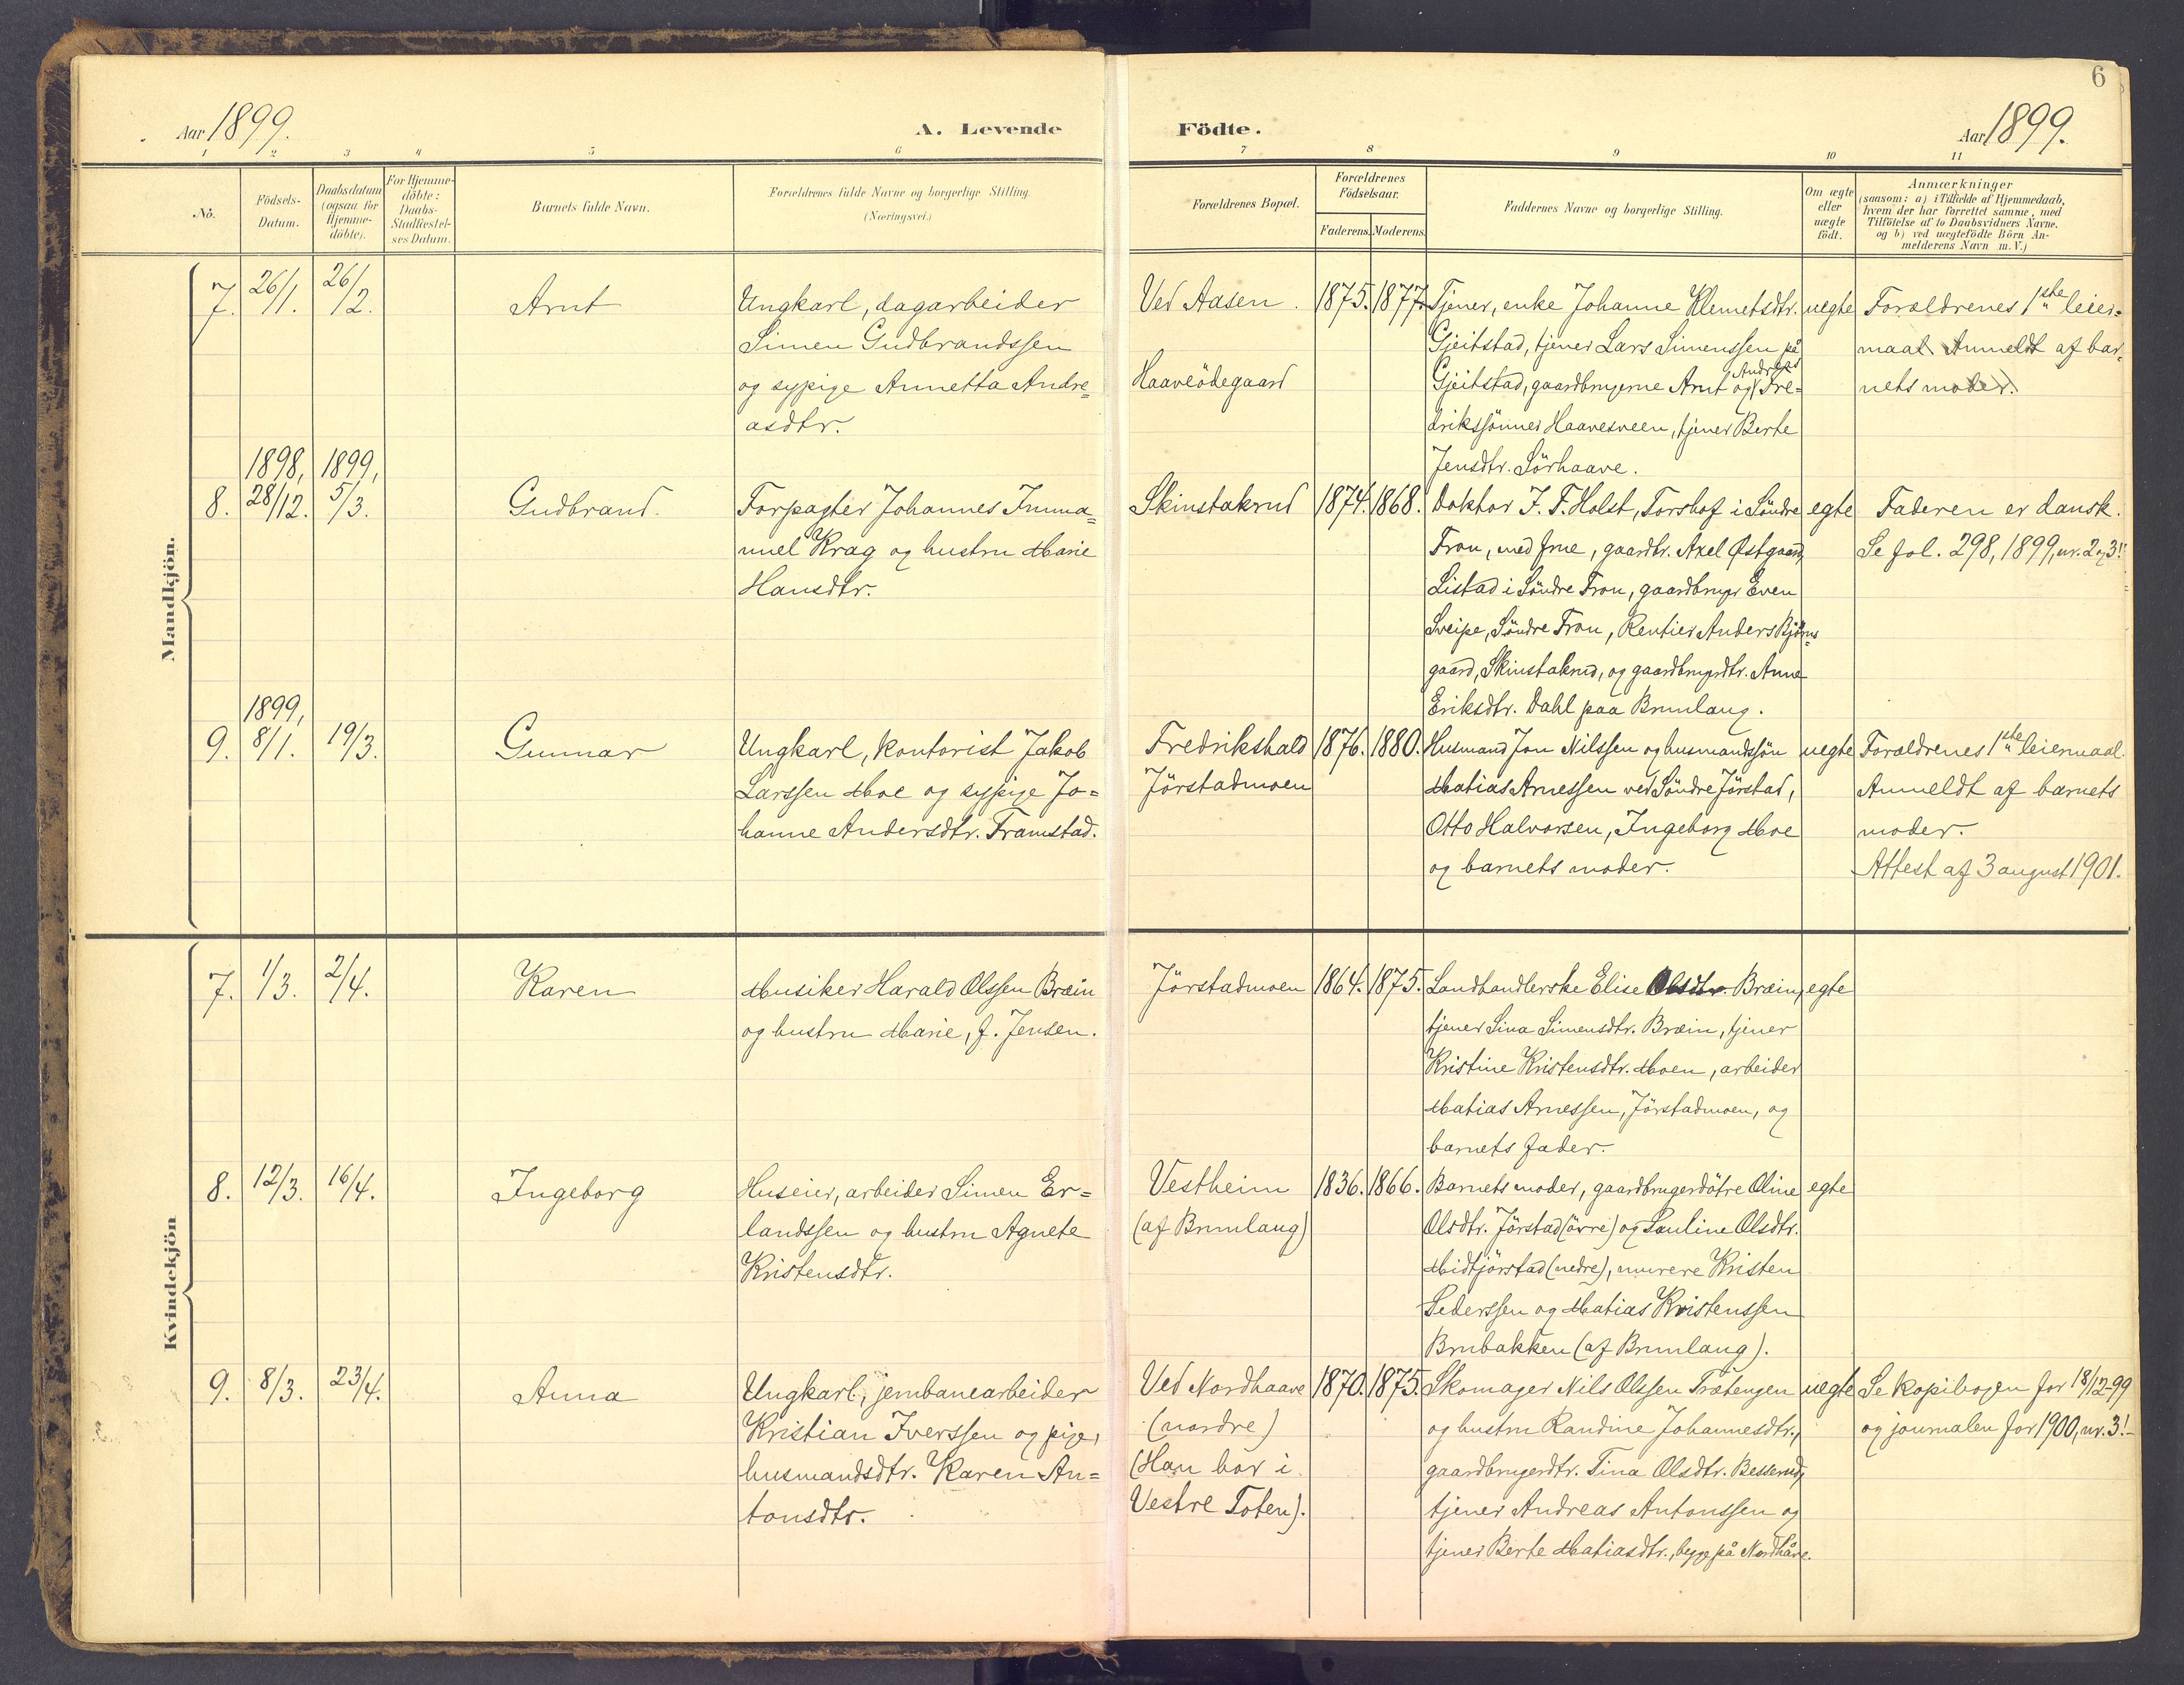 6
Aar 1899.
A. Levende Födte.
Aar 1899.
1 2 3 4 5 6 7 8 9 10 11
No.
Födsels-
Datum.
Daabsdatum
(ogsaa for
Hjemme-
döbte).
For Hjemme-
döbte:
Daabs-
Stadfæstel-
ses Datum.
Barnets fulde Navn.
Forældrenes fulde Navne og borgerlige Stilling.
(Næringsvei.)
Forældrenes Bopæl.
Forældrenes
Födselsaar.
Faderens. Moderens.
Faddernes Navne og borgerlige Stilling.
Om ægte
eller
uægte
födt.
Anmærkninger
(saasom: a) i Tilfælde af Hjemmedaab,
hvem der har forrettet samme, med
Tilföielse af to Daabsvidners Navne.
og b) ved uægtefödte Börn An-
melderens Navn m. V.)
Mandkjön.
7. 26/1. 26/2.
Arnt
Ungkarl, dagarbeider
Simen Gudbrandssen
og sypige Annetta Andre=
asdtr.
Ved Aasen.
Haaveödegaard
1875. 1877.
Tjener, enke Johanne Klemetsdtr.
Gjeitstad, tjener Lars Simenssen på
Gjeitstad, gaardbrugerne Arnt og Andreas Fre=
drikssønner Haavesveen, tjener Berte
Jensdtr. Sörhaave.
uegte
Forældrenes 1ste leier-
maal. Anmeldt af bar-
nets moder.
1898, 1899,
8. 28/12. 5/3.
Gudbrand.
Forpagter Johannes Imma=
nuel Krag og hustru Marie
Hansdtr.
Skinstakrud
1874. 1868.
Doktor J. F. Holst, Torshof i Söndre
Fron, med frue, gaardbr. Axel Østgaard,
Listad i Söndre Fron, gaardbruger Even
Sveipe, Söndre Fron, Rentier Anders Björns=
gaard, Skinstakrud, og gaardbrugerdtr. Anne
Eriksdtr. Dahl paa Brunlaug.
egte
Faderen er dansk.
Se fol. 298, 1899, nr. 2 og 3!
1899,
9. 8/1. 19/3.
Gunnar
Ungkarl, kontorist Jakob
Larssen Moe og sypige Jo=
hanne Andersdtr. Framstad.
Fredrikshald
Jörstadmoen
1876. 1880.
Husmand Jon Nilssen og husmandssön
Matias Arnessen ved Söndre Jörstad,
Otto Halvorsen, Ingeborg Moe
og barnets moder.
uegte
Forældrenes 1ste leiermaal.
Anmeldt af barnets
moder.
Attest af 3 august 1901.
Kvindekjön
7. 1/3. 2/4.
Karen
Musiker Harald Olssen Bræin
og hustru Marie, f. Jensen.
Jörstadmoen
1864. 1875.
Landhandlerske Elise Olsdtr. Bræin,
tjener Sina Simensdtr. Bræin, tjener
Kristine Kristensdtr. Moen, arbeider
Matias Arnessen, Jörstadmoen, og
barnets fader.
egte
8. 12/3. 16/4.
Ingeborg
Huseier, arbeider Simen Er=
landssen og hustru Agnete
Kristensdtr.
Vestheim
(af Brunlaug)
1836. 1866.
Barnets moder, gaardbrugerdötre Oline
Olsdtr. Jörstad (övre) og Pauline Olsdtr.
Midtjörstad (nedre), murere Kristen
Pederssen og Matias Kristenssen
Brubakken (af Brunlaug).
egte
9. 8/3. 23/4.
Anna
Ungkarl, jernbanearbeider
Kristian Iverssen og pige,
husmandsdtr. Karen An=
tonsdtr.
Ved Nordhaave
(nordre)
(Han bor i
Vestre Toten).
1870. 1875.
Skomager Nils Olssen Trætengen
og hustru Randine Johannesdtr.,
gaardbrugerdtr. Tina Olsdtr. Besserud,
tjener Andreas Antonssen og
tjener Berte Matiasdtr., begge på Nordhåve.
uegte
Se kopibogen for 18/12-99
og journalen for 1900, nr. 3!